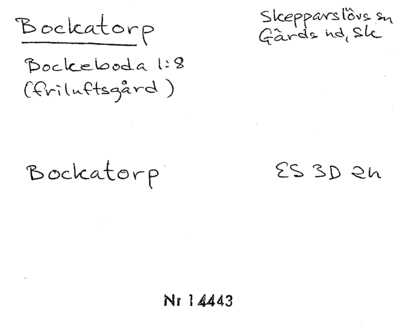 Bockatorp
Skepparslövs sn
Gärds hd, Sk
Bockeboda 1:8
(friluftsgård)
Bockatorp
ES 3D 2h
Nr 14443